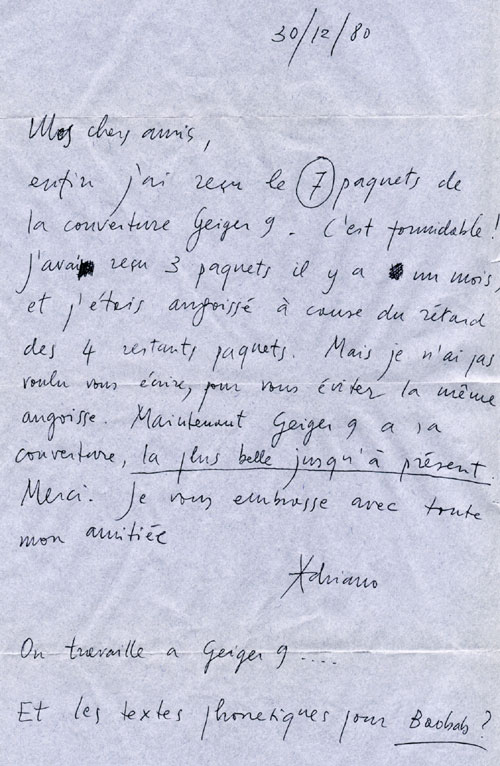 30/12/80
Mes chers amis,
enfin j'ai reçu le 7 paquets de
la couverture Geiger 9. C'est formidable!
J'avai reçu 3 paquets il y a un mois,
et j'étais angoissé à cause du rétard
des 4 restants paquets. Mais je n'ai pas
voulu vous écrire, pour vous éviter la même
angoisse. Maintenant Geiger 9 a sa
couverture, la plus belle jusqu'à présent.
Merci. Je vous embrasse avec toute
mon amitiée
Adriano
On travaille a Geiger 9....
Et les textes phonetiques pour Baobab?